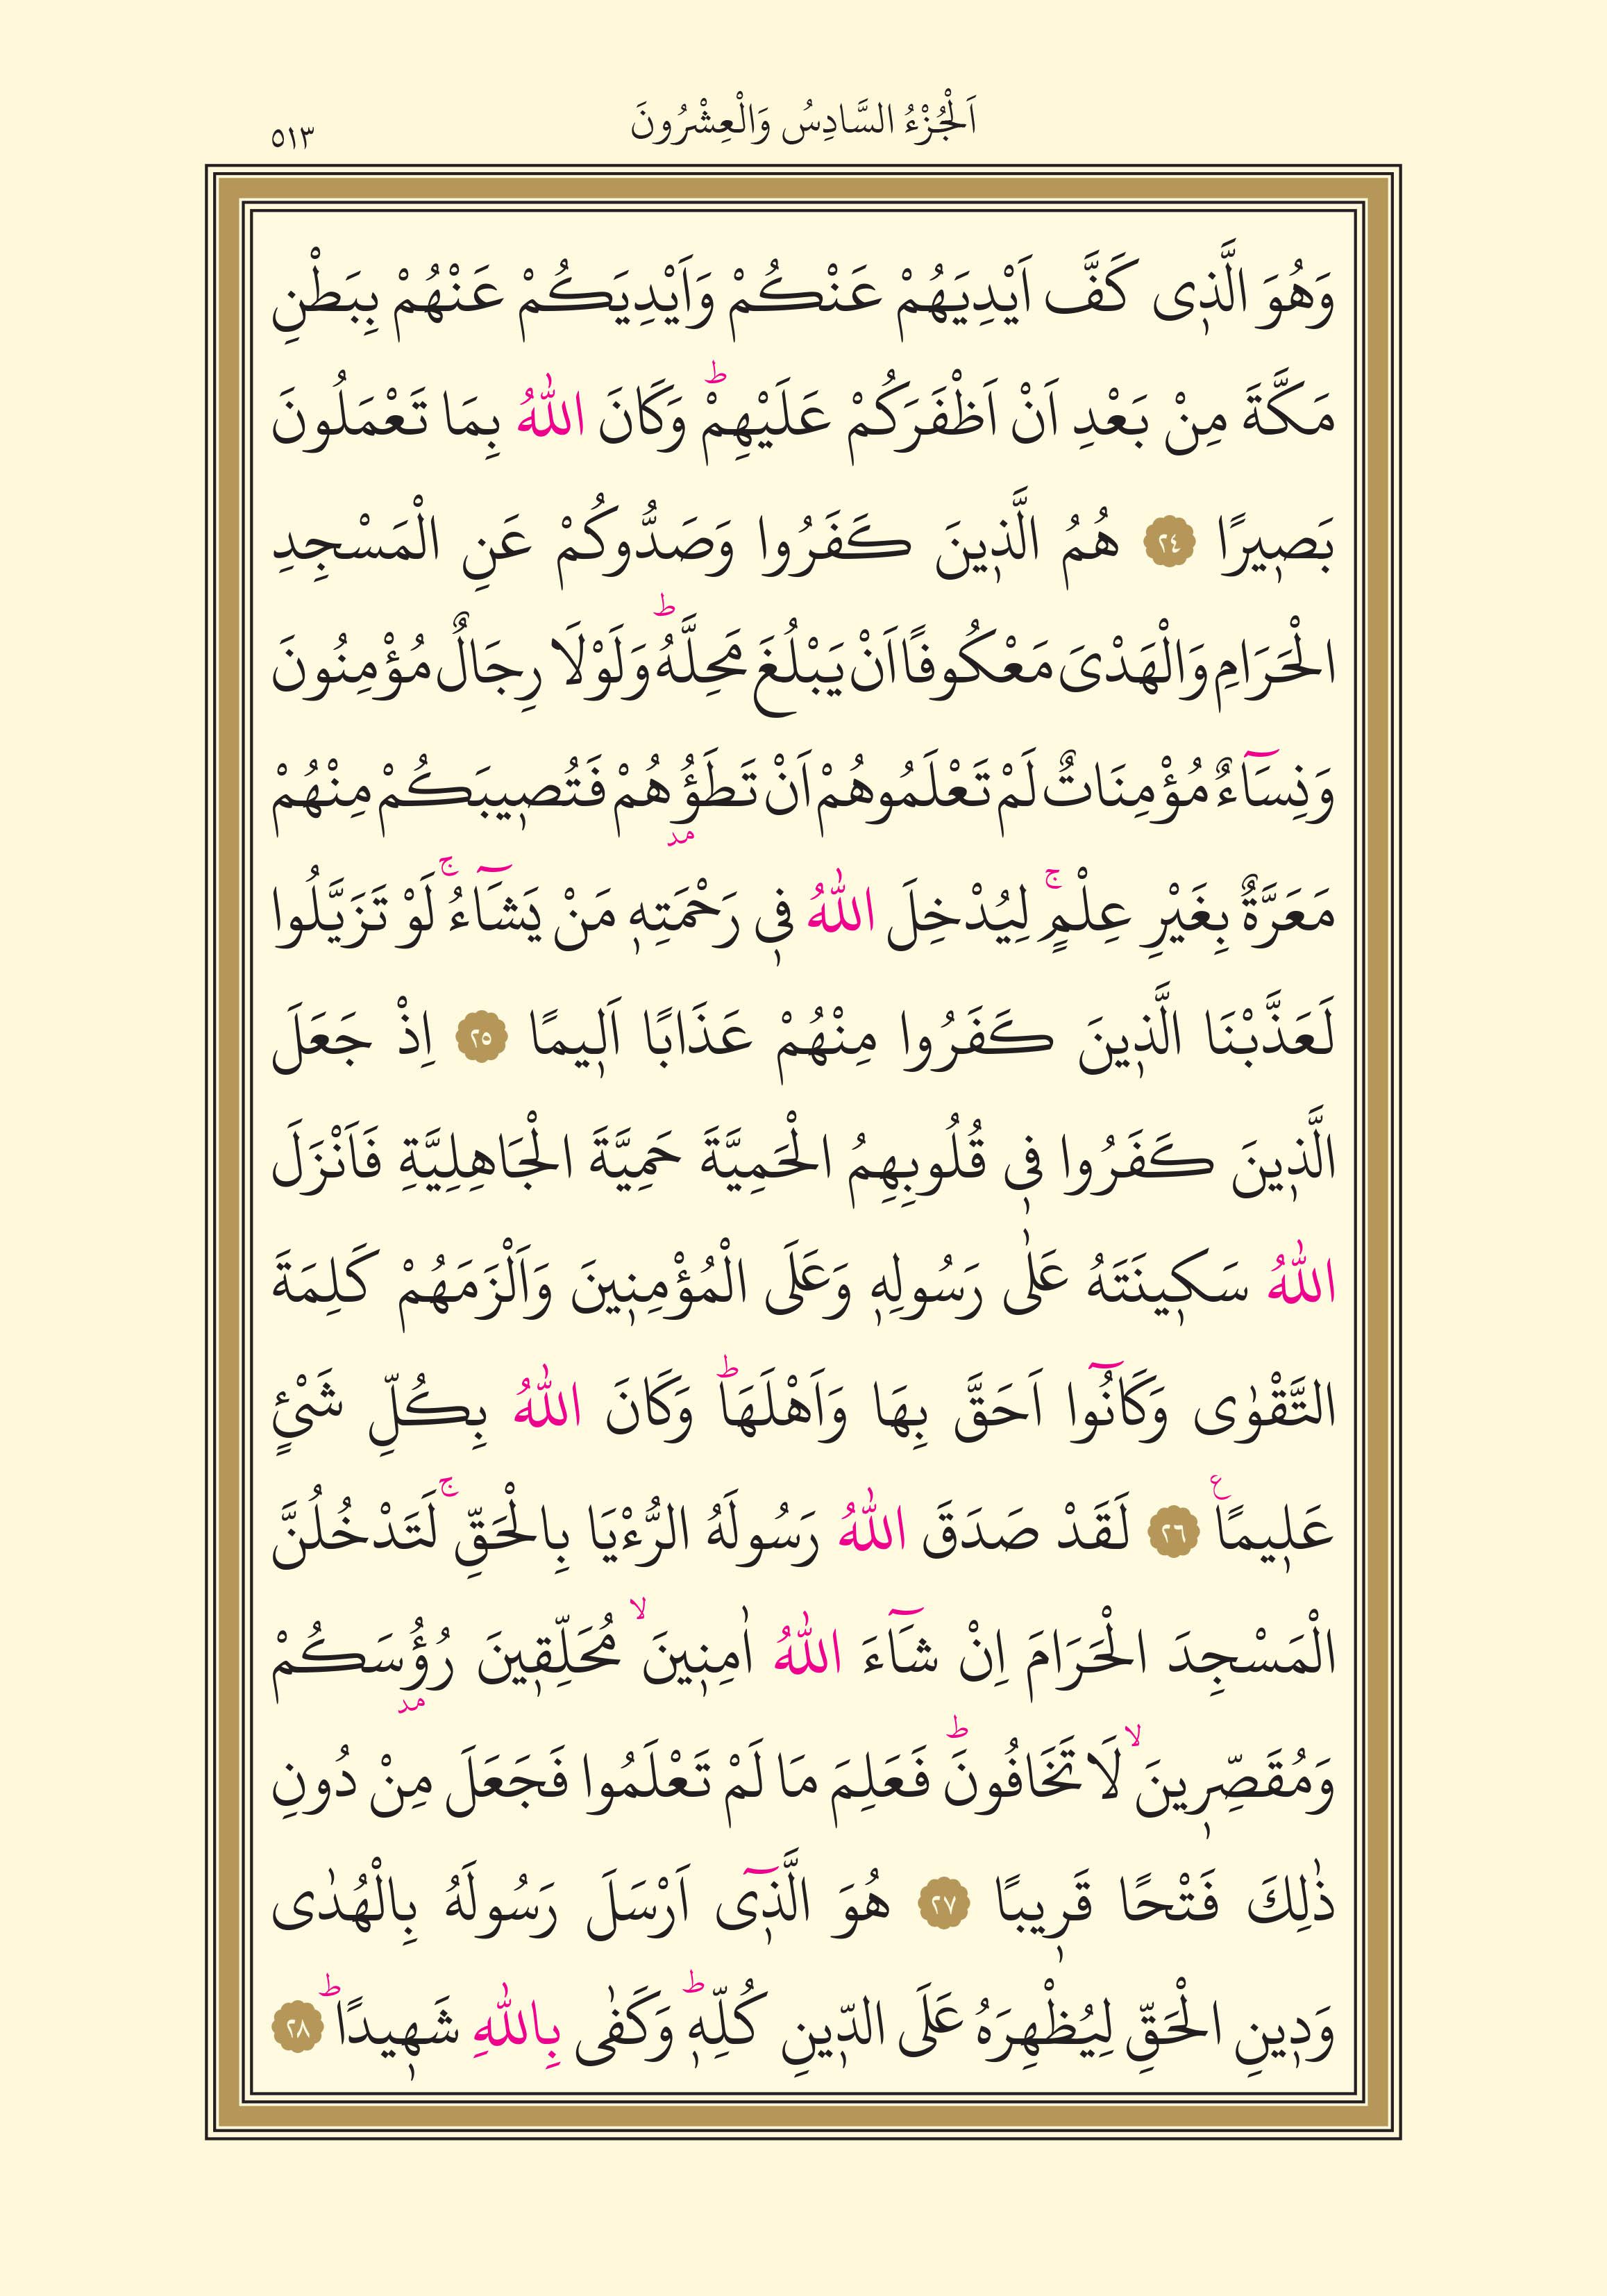 اَلْجُزْءُ السَّادِسُ وَالْعِشْرُونَ
٥١٣
وَهُوَ الَّذٖى كَفَّ اَيْدِيَهُمْ عَنْكُمْ وَاَيْدِيَكُمْ عَنْهُمْ بِبَطْنِ
مَكَّةَ مِنْ بَعْدِ اَنْ اَظْفَرَكُمْ عَلَيْهِمْؕ وَكَانَ اللّٰهُ بِمَا تَعْمَلُونَ
بَصٖيرًا ﴿٢٤﴾ هُمُ الَّذٖينَ كَفَرُوا وَصَدُّوكُمْ عَنِ الْمَسْجِدِ
الْحَرَامِ وَالْهَدْىَ مَعْكُوفًا اَنْ يَبْلُغَ مَحِلَّهُؕ وَلَوْلَا رِجَالٌ مُؤْمِنُونَ
وَنِسَٓاءٌ مُؤْمِنَاتٌ لَمْ تَعْلَمُوهُمْ اَنْ تَطَؤُهُمْ فَتُصٖيبَكُمْ مِنْهُمْ
مد
مَعَرَّةٌ بِغَيْرِ عِلْمٍۚ لِيُدْخِلَ اللّٰهُ فٖى رَحْمَتِهٖ مَنْ يَشَٓاءُۚ لَوْ تَزَيَّلُوا
لَعَذَّبْنَا الَّذٖينَ كَفَرُوا مِنْهُمْ عَذَابًا اَلٖيمًا ﴿٢٥﴾ اِذْ جَعَلَ
الَّذٖينَ كَفَرُوا فٖى قُلُوبِهِمُ الْحَمِيَّةَ حَمِيَّةَ الْجَاهِلِيَّةِ فَاَنْزَلَ
اللّٰهُ سَكٖينَتَهُ عَلٰى رَسُولِهٖ وَعَلَى الْمُؤْمِنٖينَ وَاَلْزَمَهُمْ كَلِمَةَ
التَّقْوٰى وَكَانُٓوا اَحَقَّ بِهَا وَاَهْلَهَاؕ وَكَانَ اللّٰهُ بِكُلِّ شَىْءٍ
عَلٖيمًاࣖ ﴿٢٦﴾ لَقَدْ صَدَقَ اللّٰهُ رَسُولَهُ الرُّءْيَا بِالْحَقِّۚ لَتَدْخُلُنَّ
الْمَسْجِدَ الْحَرَامَ اِنْ شَٓاءَ اللّٰهُ اٰمِنٖينَۙ مُحَلِّقٖينَ رُؤُسَكُمْ
مد
وَمُقَصِّرٖينَۙ لَا تَخَافُونَؕ فَعَلِمَ مَا لَمْ تَعْلَمُوا فَجَعَلَ مِنْ دُونِ
ذٰلِكَ فَتْحًا قَرٖيبًا ﴿٢٧﴾ هُوَ الَّذٖٓى اَرْسَلَ رَسُولَهُ بِالْهُدٰى
وَدٖينِ الْحَقِّ لِيُظْهِرَهُ عَلَى الدّٖينِ كُلِّهٖؕ وَكَفٰى بِاللّٰهِ شَهٖيدًاؕ ﴿٢٨﴾